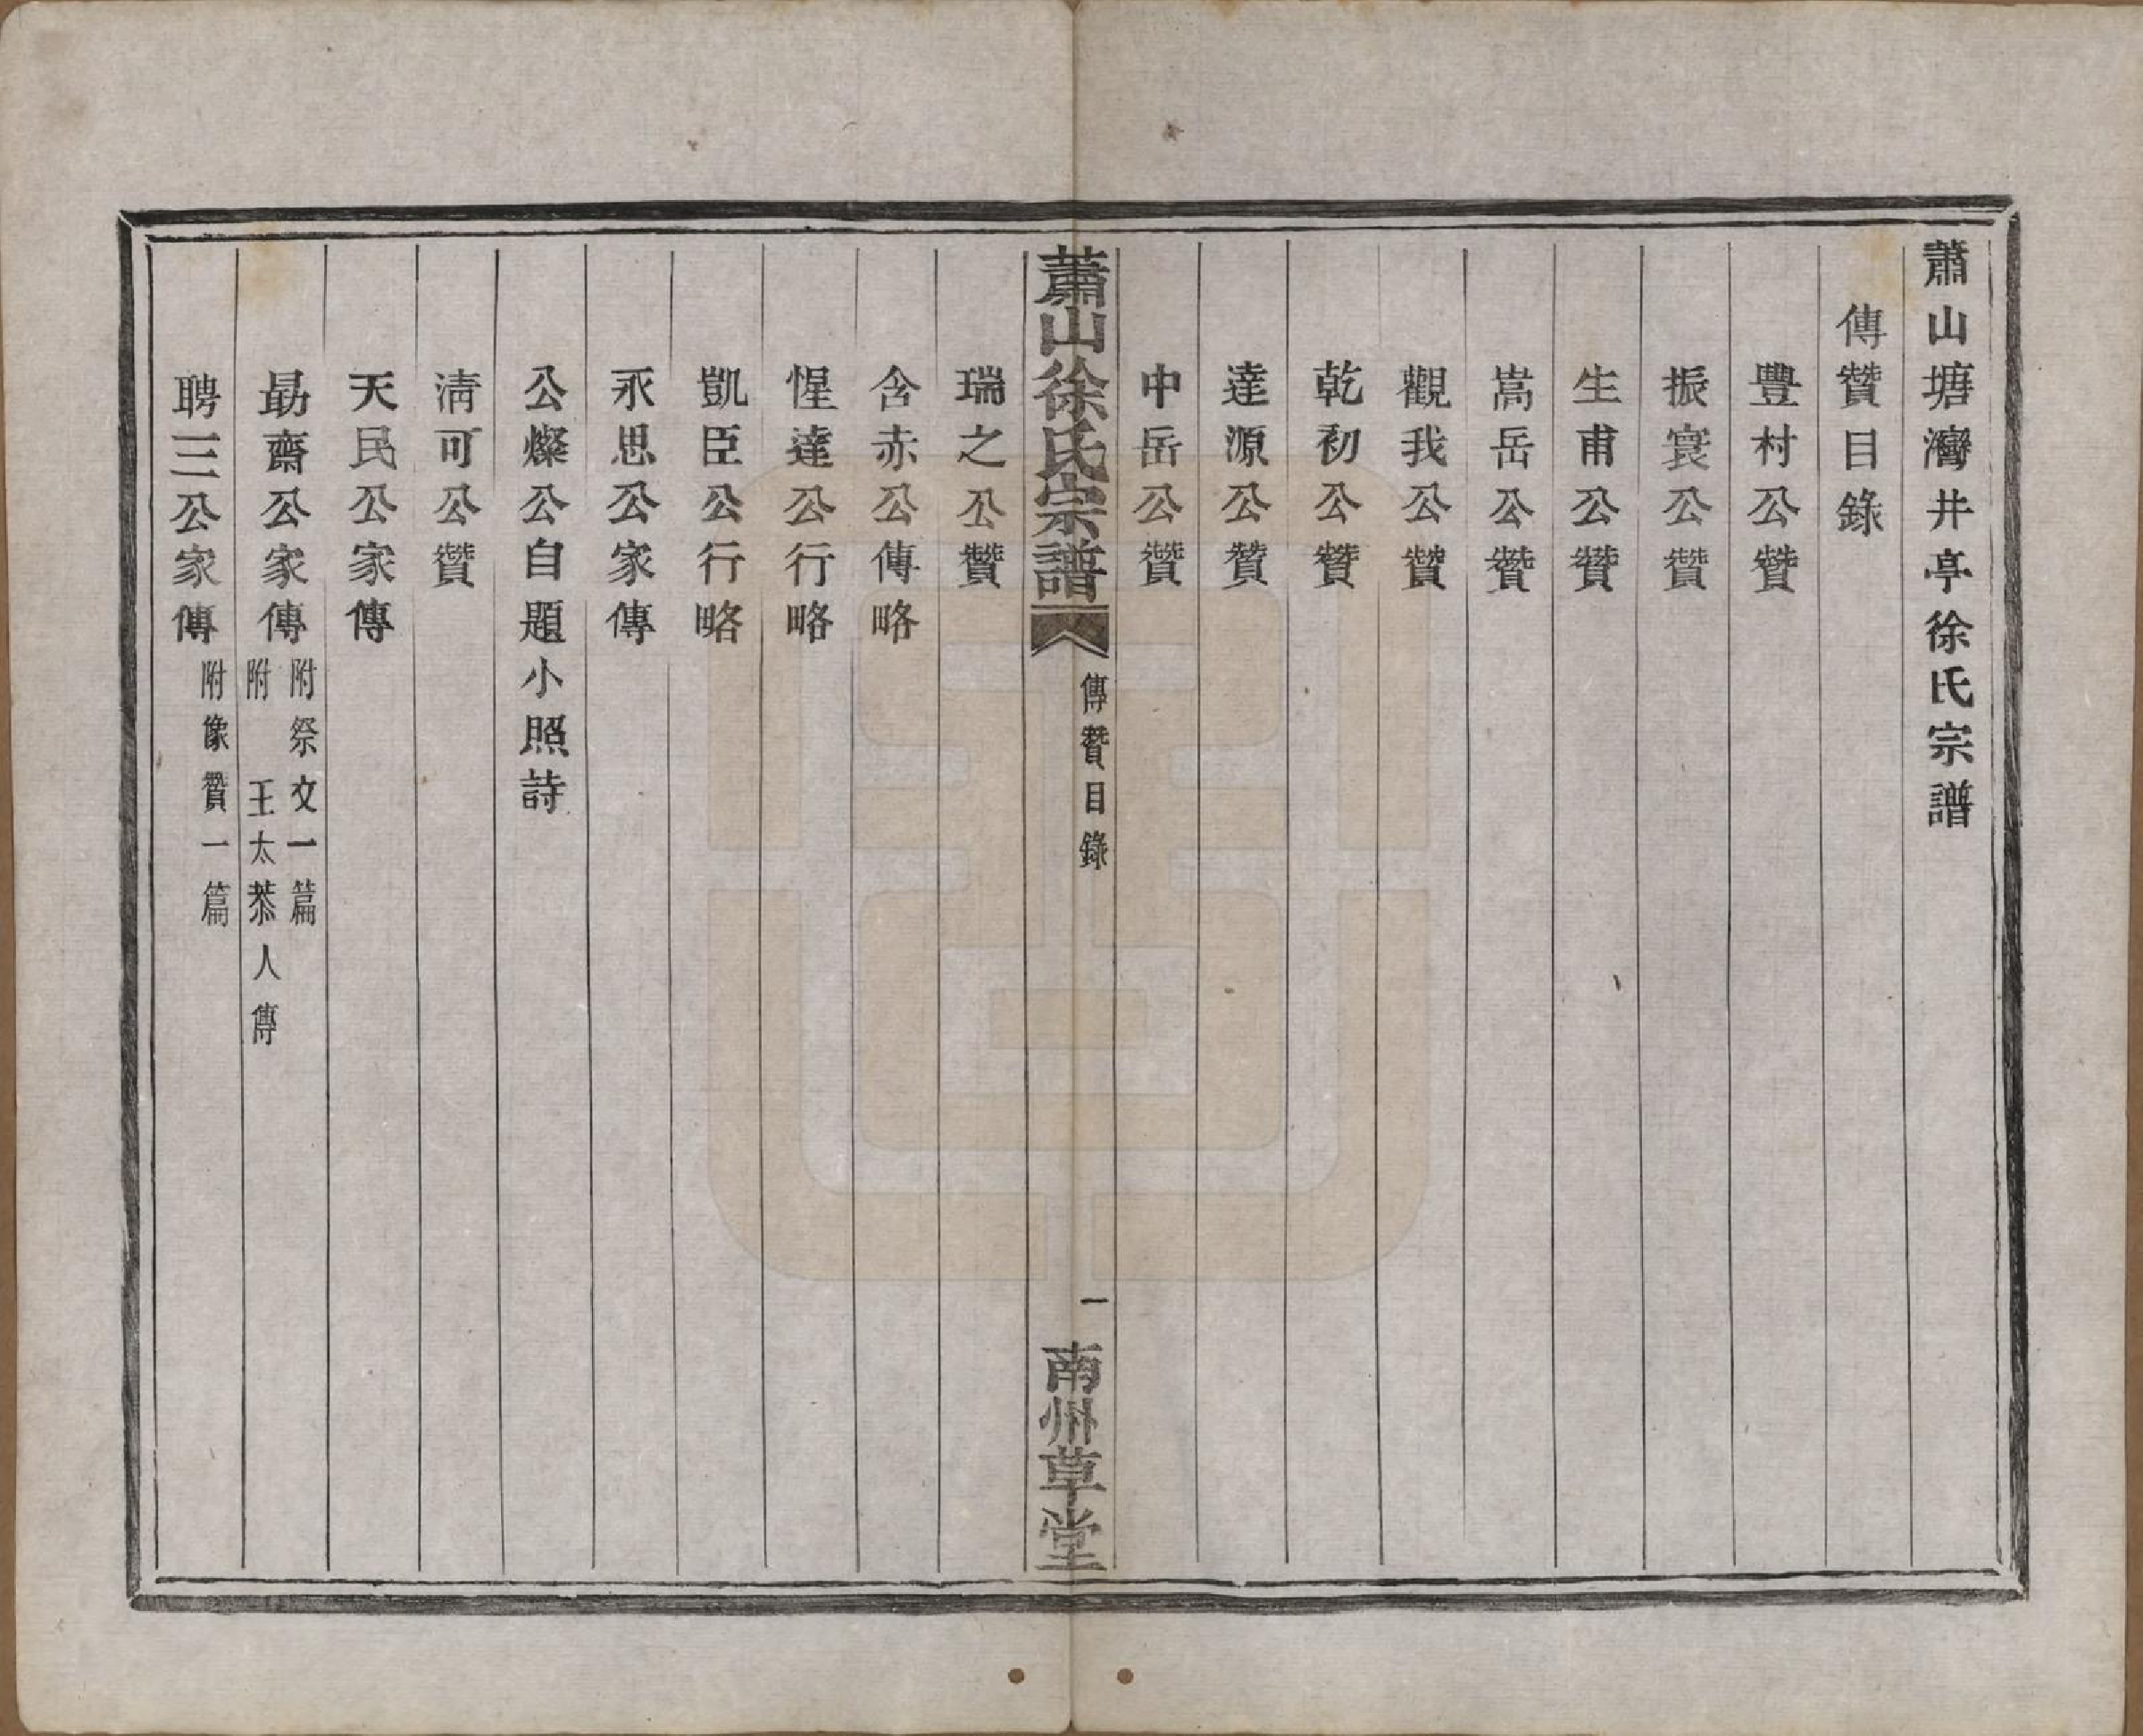 蕭山塘灣井亭徐氏宗譜
傳贊目錄
豐村公贊
振寰公贊
生甫公贊
嵩岳公贊
觀我公贊
乾初公贊
達源公贊
中岳公贊
蕭山徐氏宗譜
傳贊目錄
一
南州草堂
瑞之公贊
含赤公傳略
惺達公行略
凱臣公行略
永思公家傳
公燦公自題小照詩
清可公贊
天民公家傳
勗齋公家傳
附祭文一篇
附 王太恭人傳
聘三公家傳
附像贊一篇